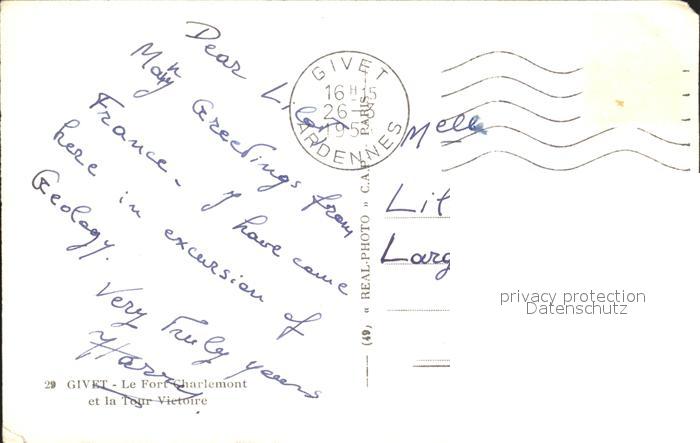 Dear Lilet
Many Greetings from
France - I have come
here in excursion of
Geology.
Very Truly yours
29 GIVET - Le Fort Charlemont
et la Tour Victoire
GIVET
16 H 15
26-
195
ARDENNES
(49, « REAL-PHOTO » C.A.P. PARIS
Melle
Lil
Larg
privacy protection
Datenschutz